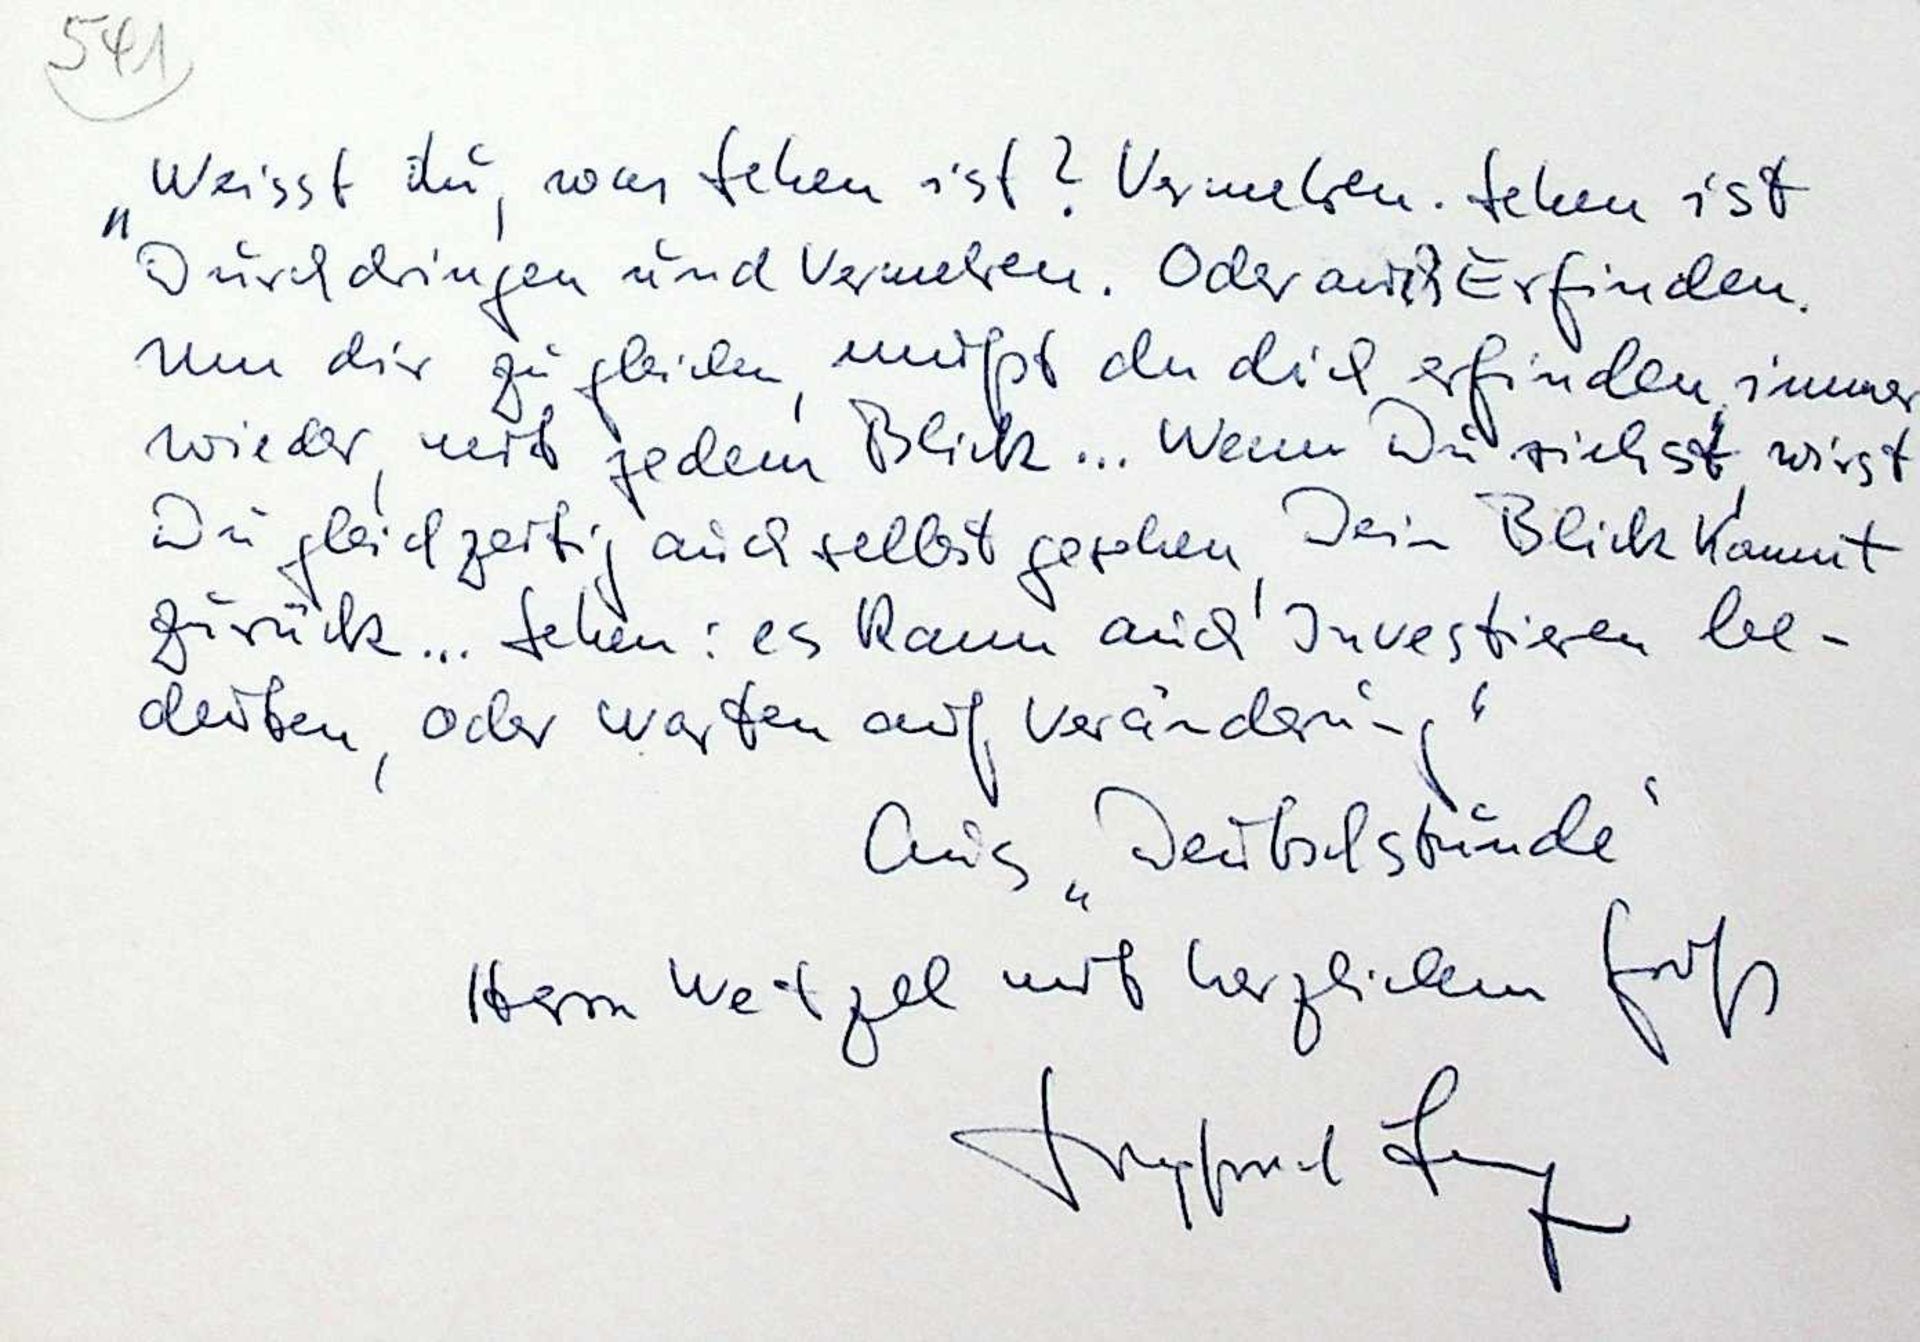 541
„Weisst du, was sehen ist? Vermehren. Sehen ist
Durchdringen und Vermehren. Oder auch Erfinden.
Um dir zu gleichen, mußt du dich erfinden, immer
wieder, mit jedem Blick... Wenn Du siehst, wirst
Du gleichzeitig auch selbst gesehen, Dein Blick kommt
zurück... Sehen: es kann auch Investieren be-
deuten, oder warten auf Veränderung“
Aus „Deutschstunde“
Herrn Wetzel mit herzlichem Gruß
Siegfried Lenz